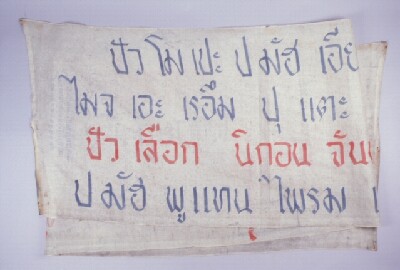 ปัว โม เปะ ป มัฮ เอีย
ไมจ เอะ เรอึม ปุ แตะ
ปัว เลือก นิกอน จัน
ป มัฮ พูแทน ไพรม